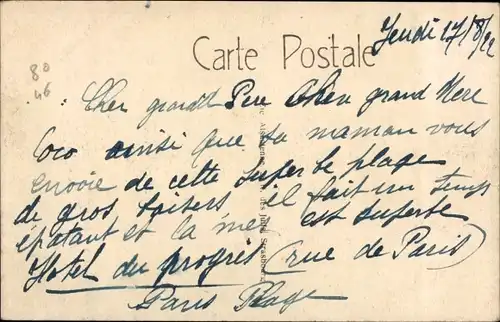 Jeudi 17/8/22
Carte Postale
80
46
Cher grand Pere Chere grand Mere
Coco ainsi que sa maman vous
envoie de cette superbe plage
de gros baisers il fait un temps
épatant et la mer est superbe
Hotel du progres (rue de Paris)
Paris Plage